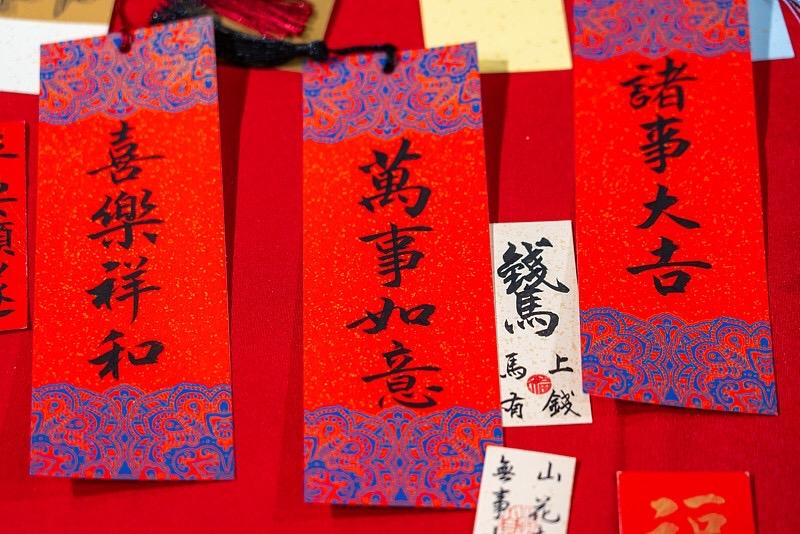 喜樂祥和
萬事如意
諸事大吉
錢馬
馬上
有錢
福
山花
無事
福